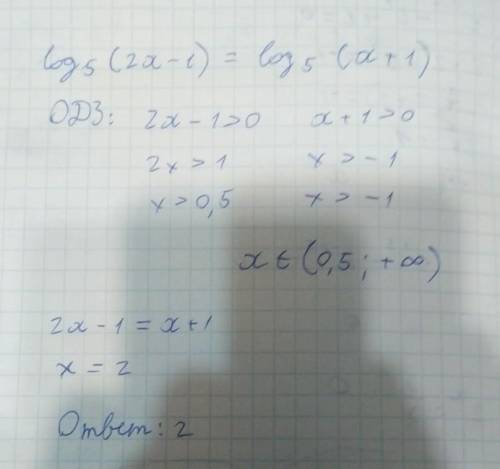 log₅ (2x-1) = log₅ (x+1)
ОДЗ: 2x-1>0 x+1>0
2x>1 x>-1
x>0,5 x>-1
x ∈ (0,5; +∞)
2x-1 = x+1
x = 2
Ответ: 2